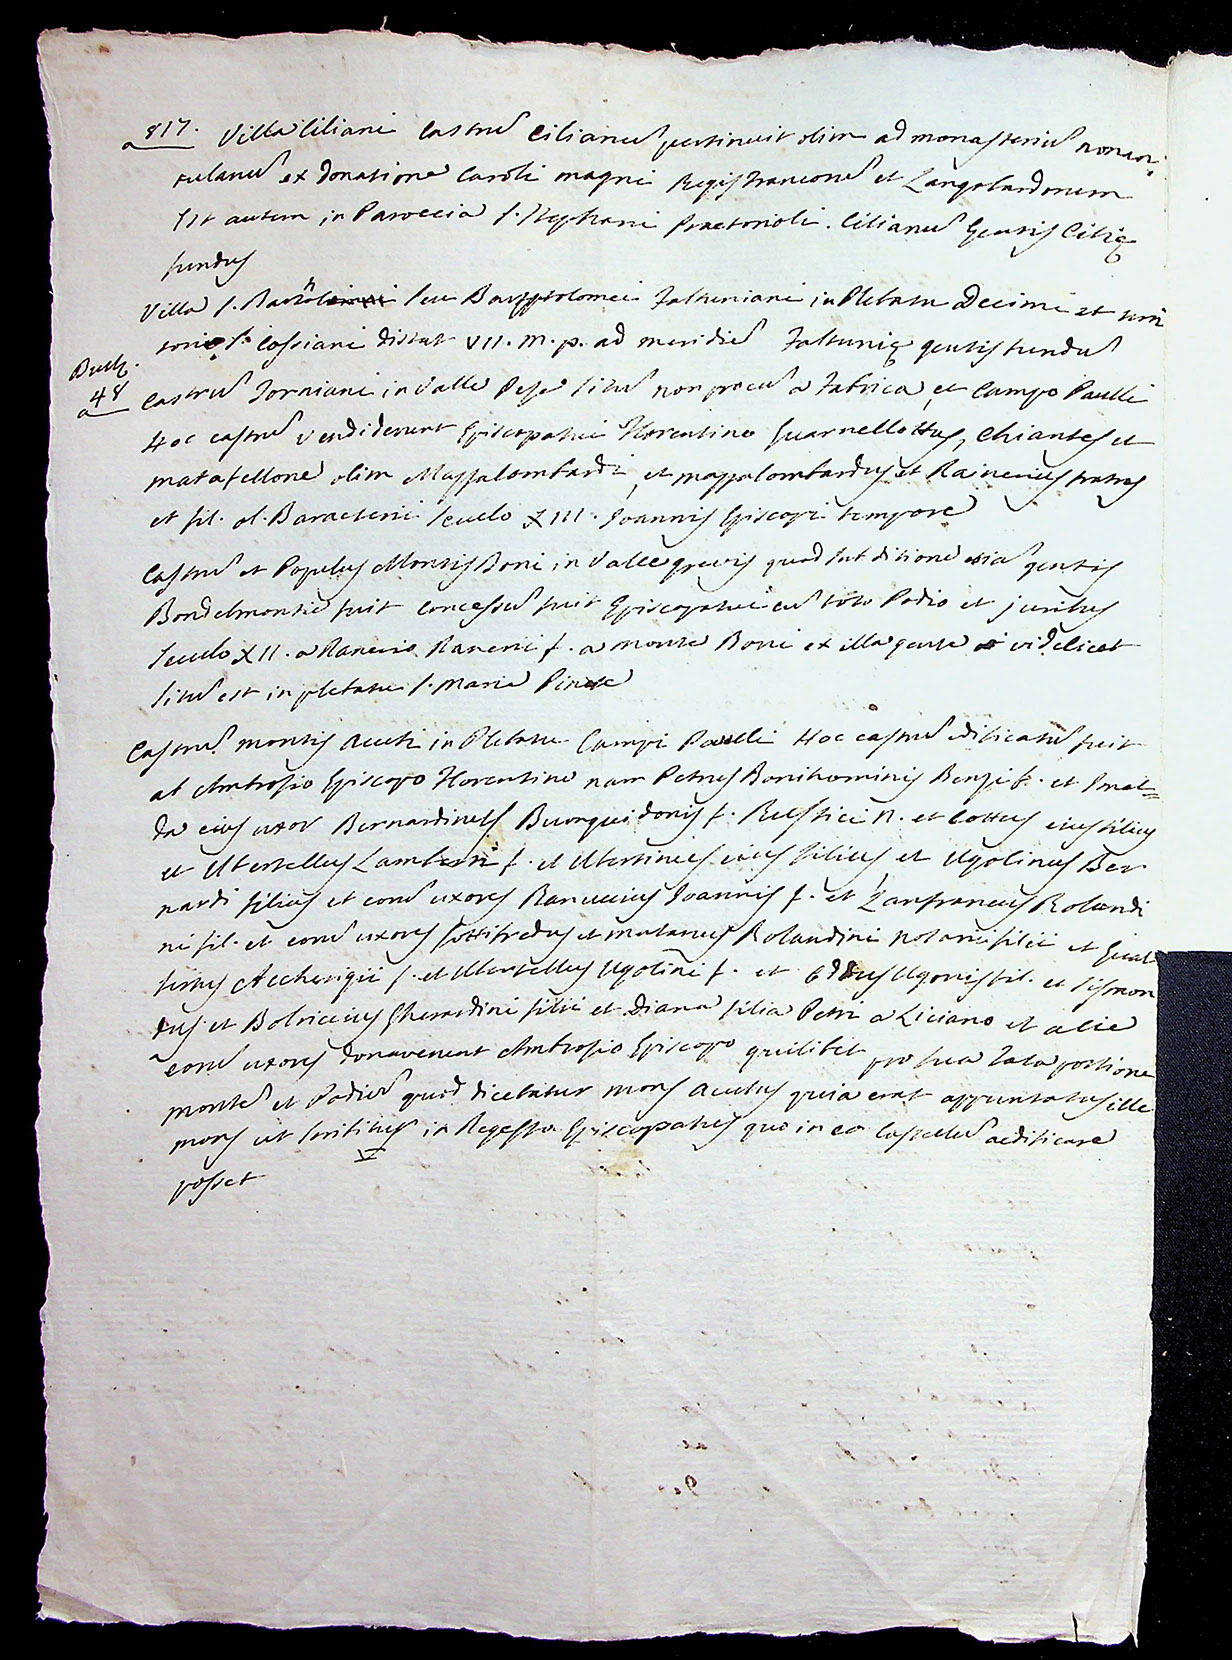 817. Villa Ciliani Castru Cilianu pertinuit olim ad monasteriu nonan-
tulanu ex donatione Caroli magni Regis Francoru et Langobardorum
sit autem in Paroecia S. Stephani Praetorioli. Cilianus Gentis Cilię
fundus
Villa S. seu Bartholomei Faltuniani in Plebatu Decimi et
S. Cassiani distat VII. M. p. ad meridie Faltunię gentis fundus
Buth.
48
Castru Torniani in Valle Pesę situ non procul a Fabrica, et Campo Paulli
Hoc castru vendiderunt Episcopatui Florentino Guarnellottus, Chiantes et
matafellone olim Massalombardi, et massalombardus et Rainerius fratres
et fil. ol. Baracterii seculo XIII. Joannis Episcopi tempore
Castru et Populus Montis Boni in Valle grevis quod sub ditione gentis
Bondelmontie fuit concessu fuit Episcopatui cu toto Podio et juribus
seculo XII. a Ranerio Ranerii f. a monte Boni ex illa gente videlicet
situ est in plebatu S. Marie
Castru montis Acuti in Plebatu Campi Paulli Hoc castru edificatu fuit
ab Ambrosio Episcopo Florentino nam Petrus Bonihominis Benzi f. et Imel=
da eius uxor Bernardinus Buonguidonis f. Rustici N. et Cottus eius filius
et Ubertellus Lamberti f. et Ubertinus eius filius et Ugolinus Ber
nardi filius et eoru uxores Ranuccius Joannis f. et Lanfrancus Rolandi
ni fil. et eoru uxores Gottifredus et matanus Rolandini notarii filii et Gual
fertus Accherigii f. et Ubertellus Ugolini f. et Ugonis fil. et sismon
dus et Bolriccius Gherardini filii et Diana filia Petri a Liciano et alie
eoru uxores donaverunt Ambrosio Episcopo quilibet pro sua rata portione
monte et Podiu quod dicebatur mons Acutus quia erat appuntatus ille
mons ut scribitur in Regesto Episcopatus quo in eo Castellu aedificare
posset